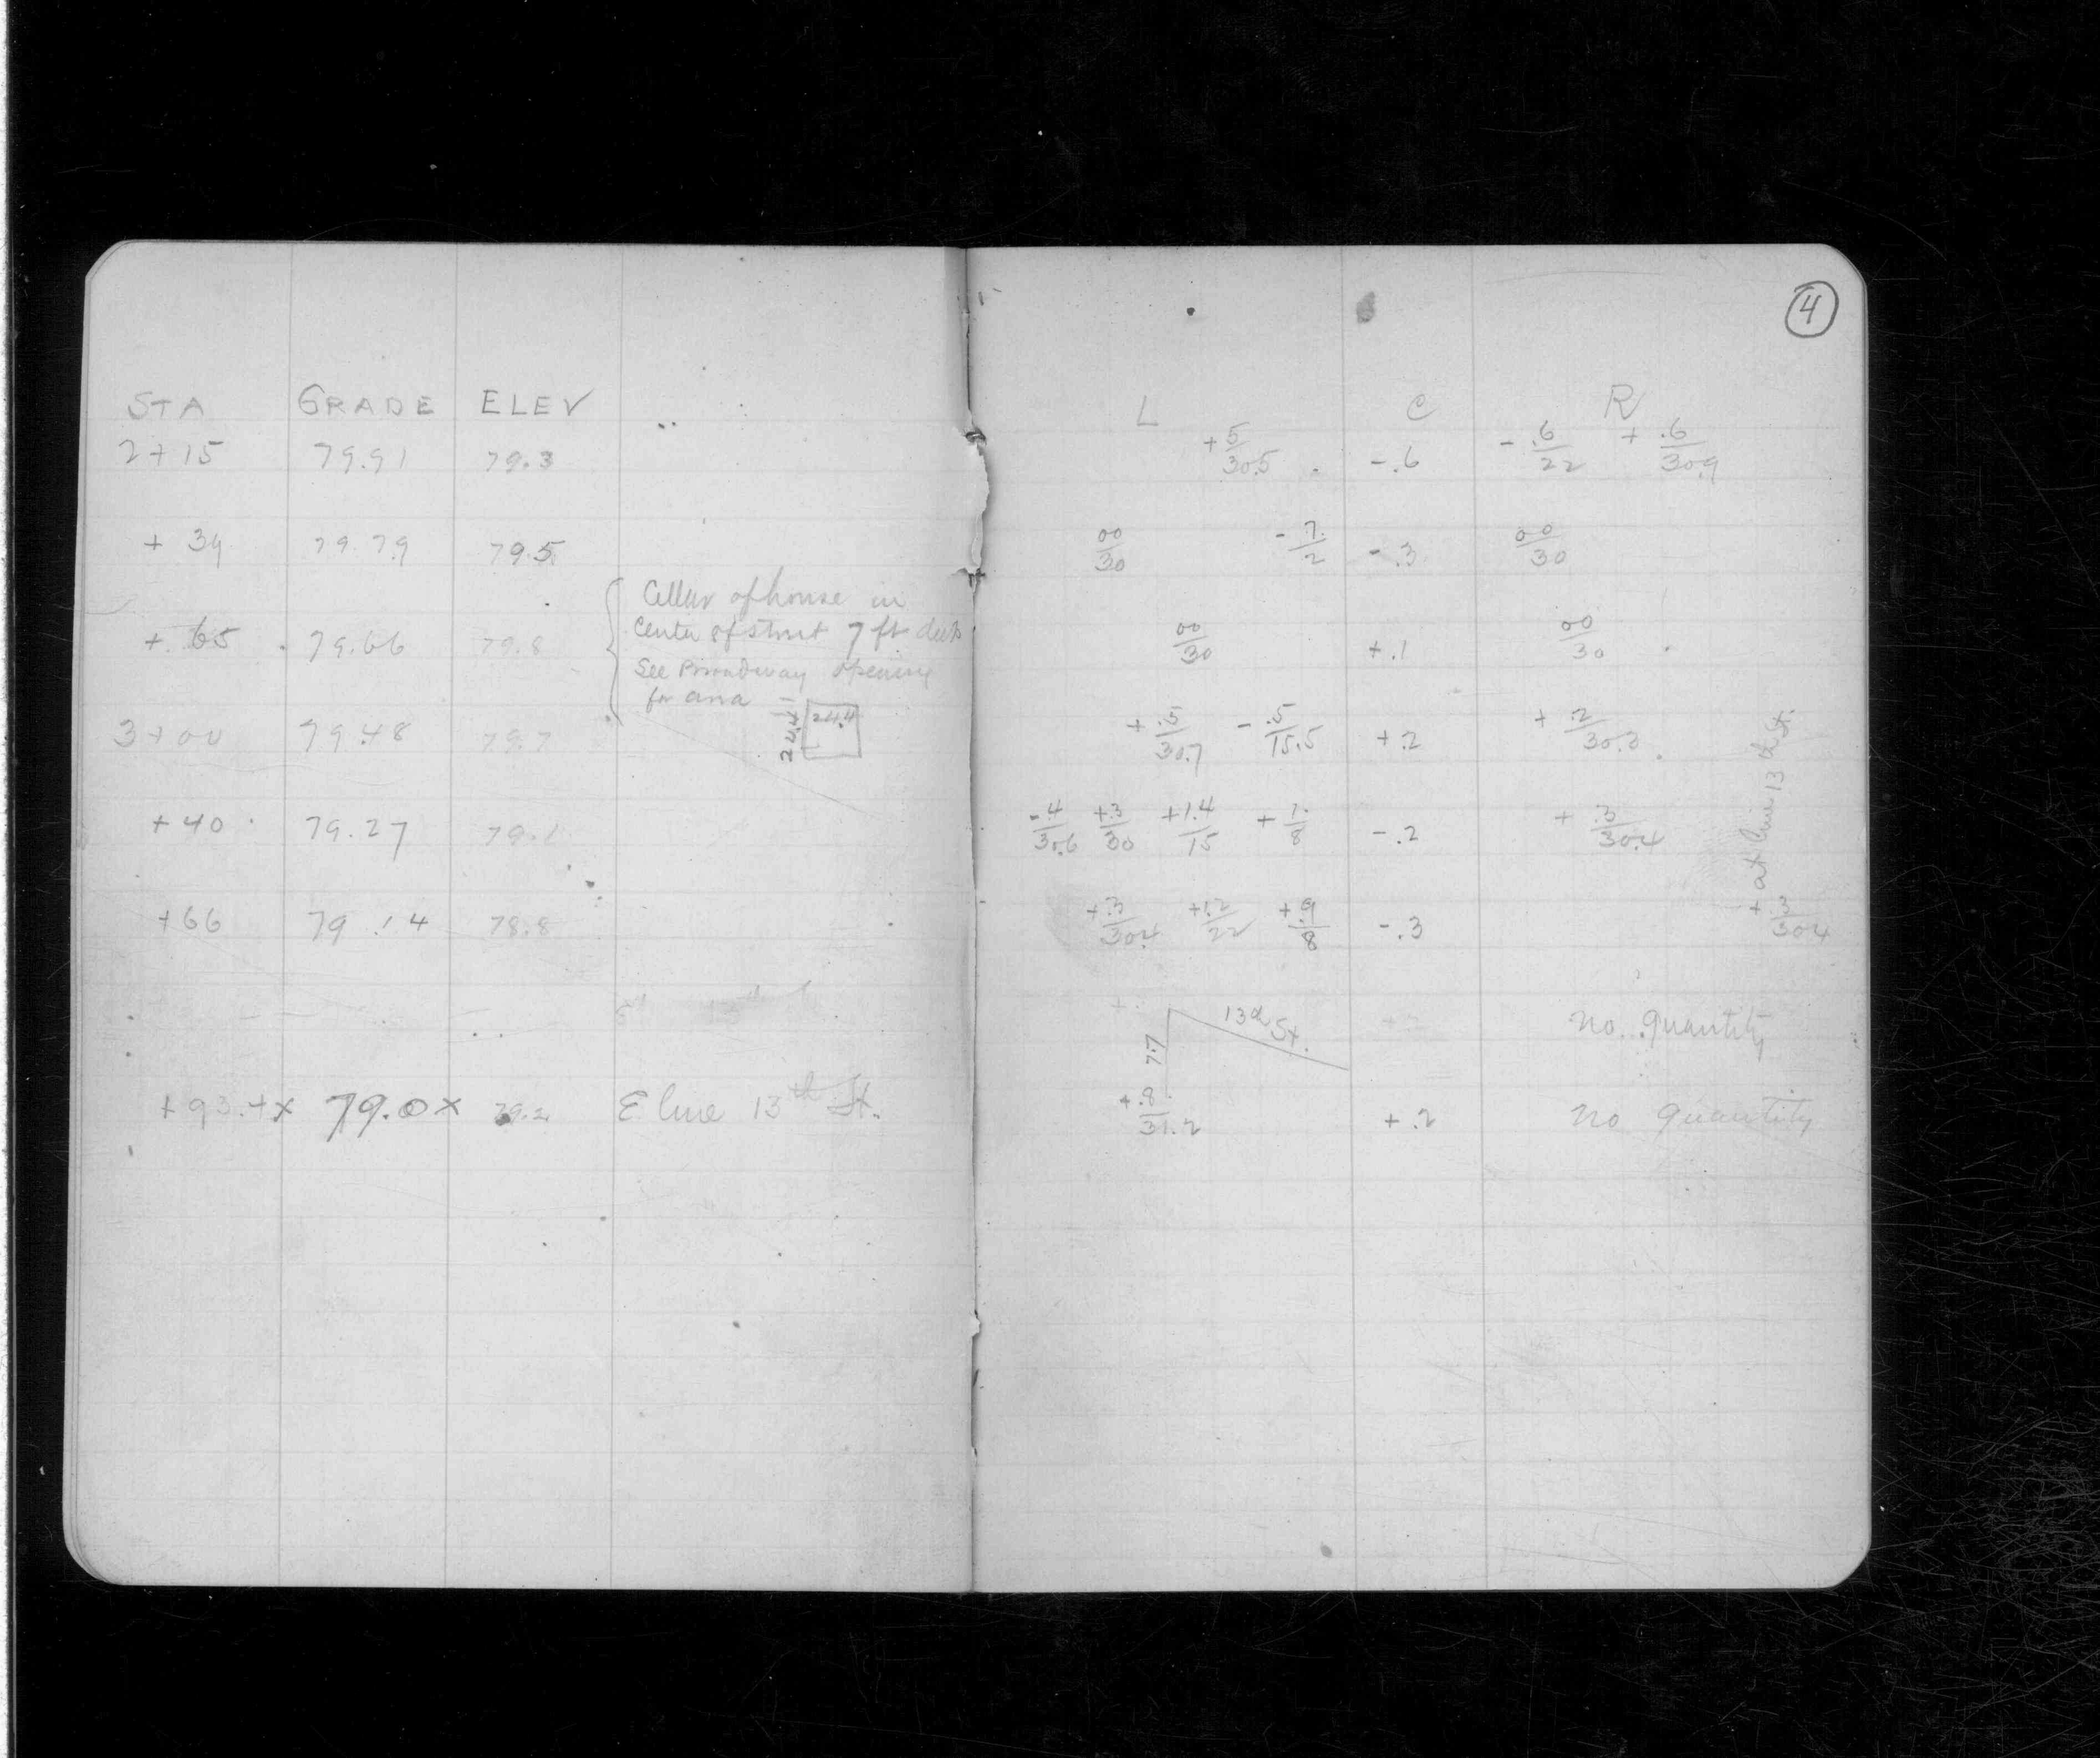 4
STA GRADE ELEV L C R
2+15 79.91 79.3 +5/30.5 -.6 -.6/22 +.6/30.9
+ 34 79.79 79.5 00/30 -7./2 -.3 00/30
Cellar of house in
center of street 7 ft deep
+ 65 79.66 79.8 00/30 +.1 00/30
See Broadway opening
for area
24.4
24.4
3+00 79.48 79.7 +.5/30.7 -.5/15.5 +.2 +.2/30.3
+40 79.27 79.1 -.4/30.6 +.3/30 +1.4/15 +1./8 -.2 +.3/30.4
at line 13th St.
+66 79.14 78.8 +.3/30.4 +1.2/22 +.9/8 -.3 +.3/30.4
13th St. no quantity
7.7
+93.4x 79.0x 79.2 E line 13th St. +.8/31.2 +.2 no quantity